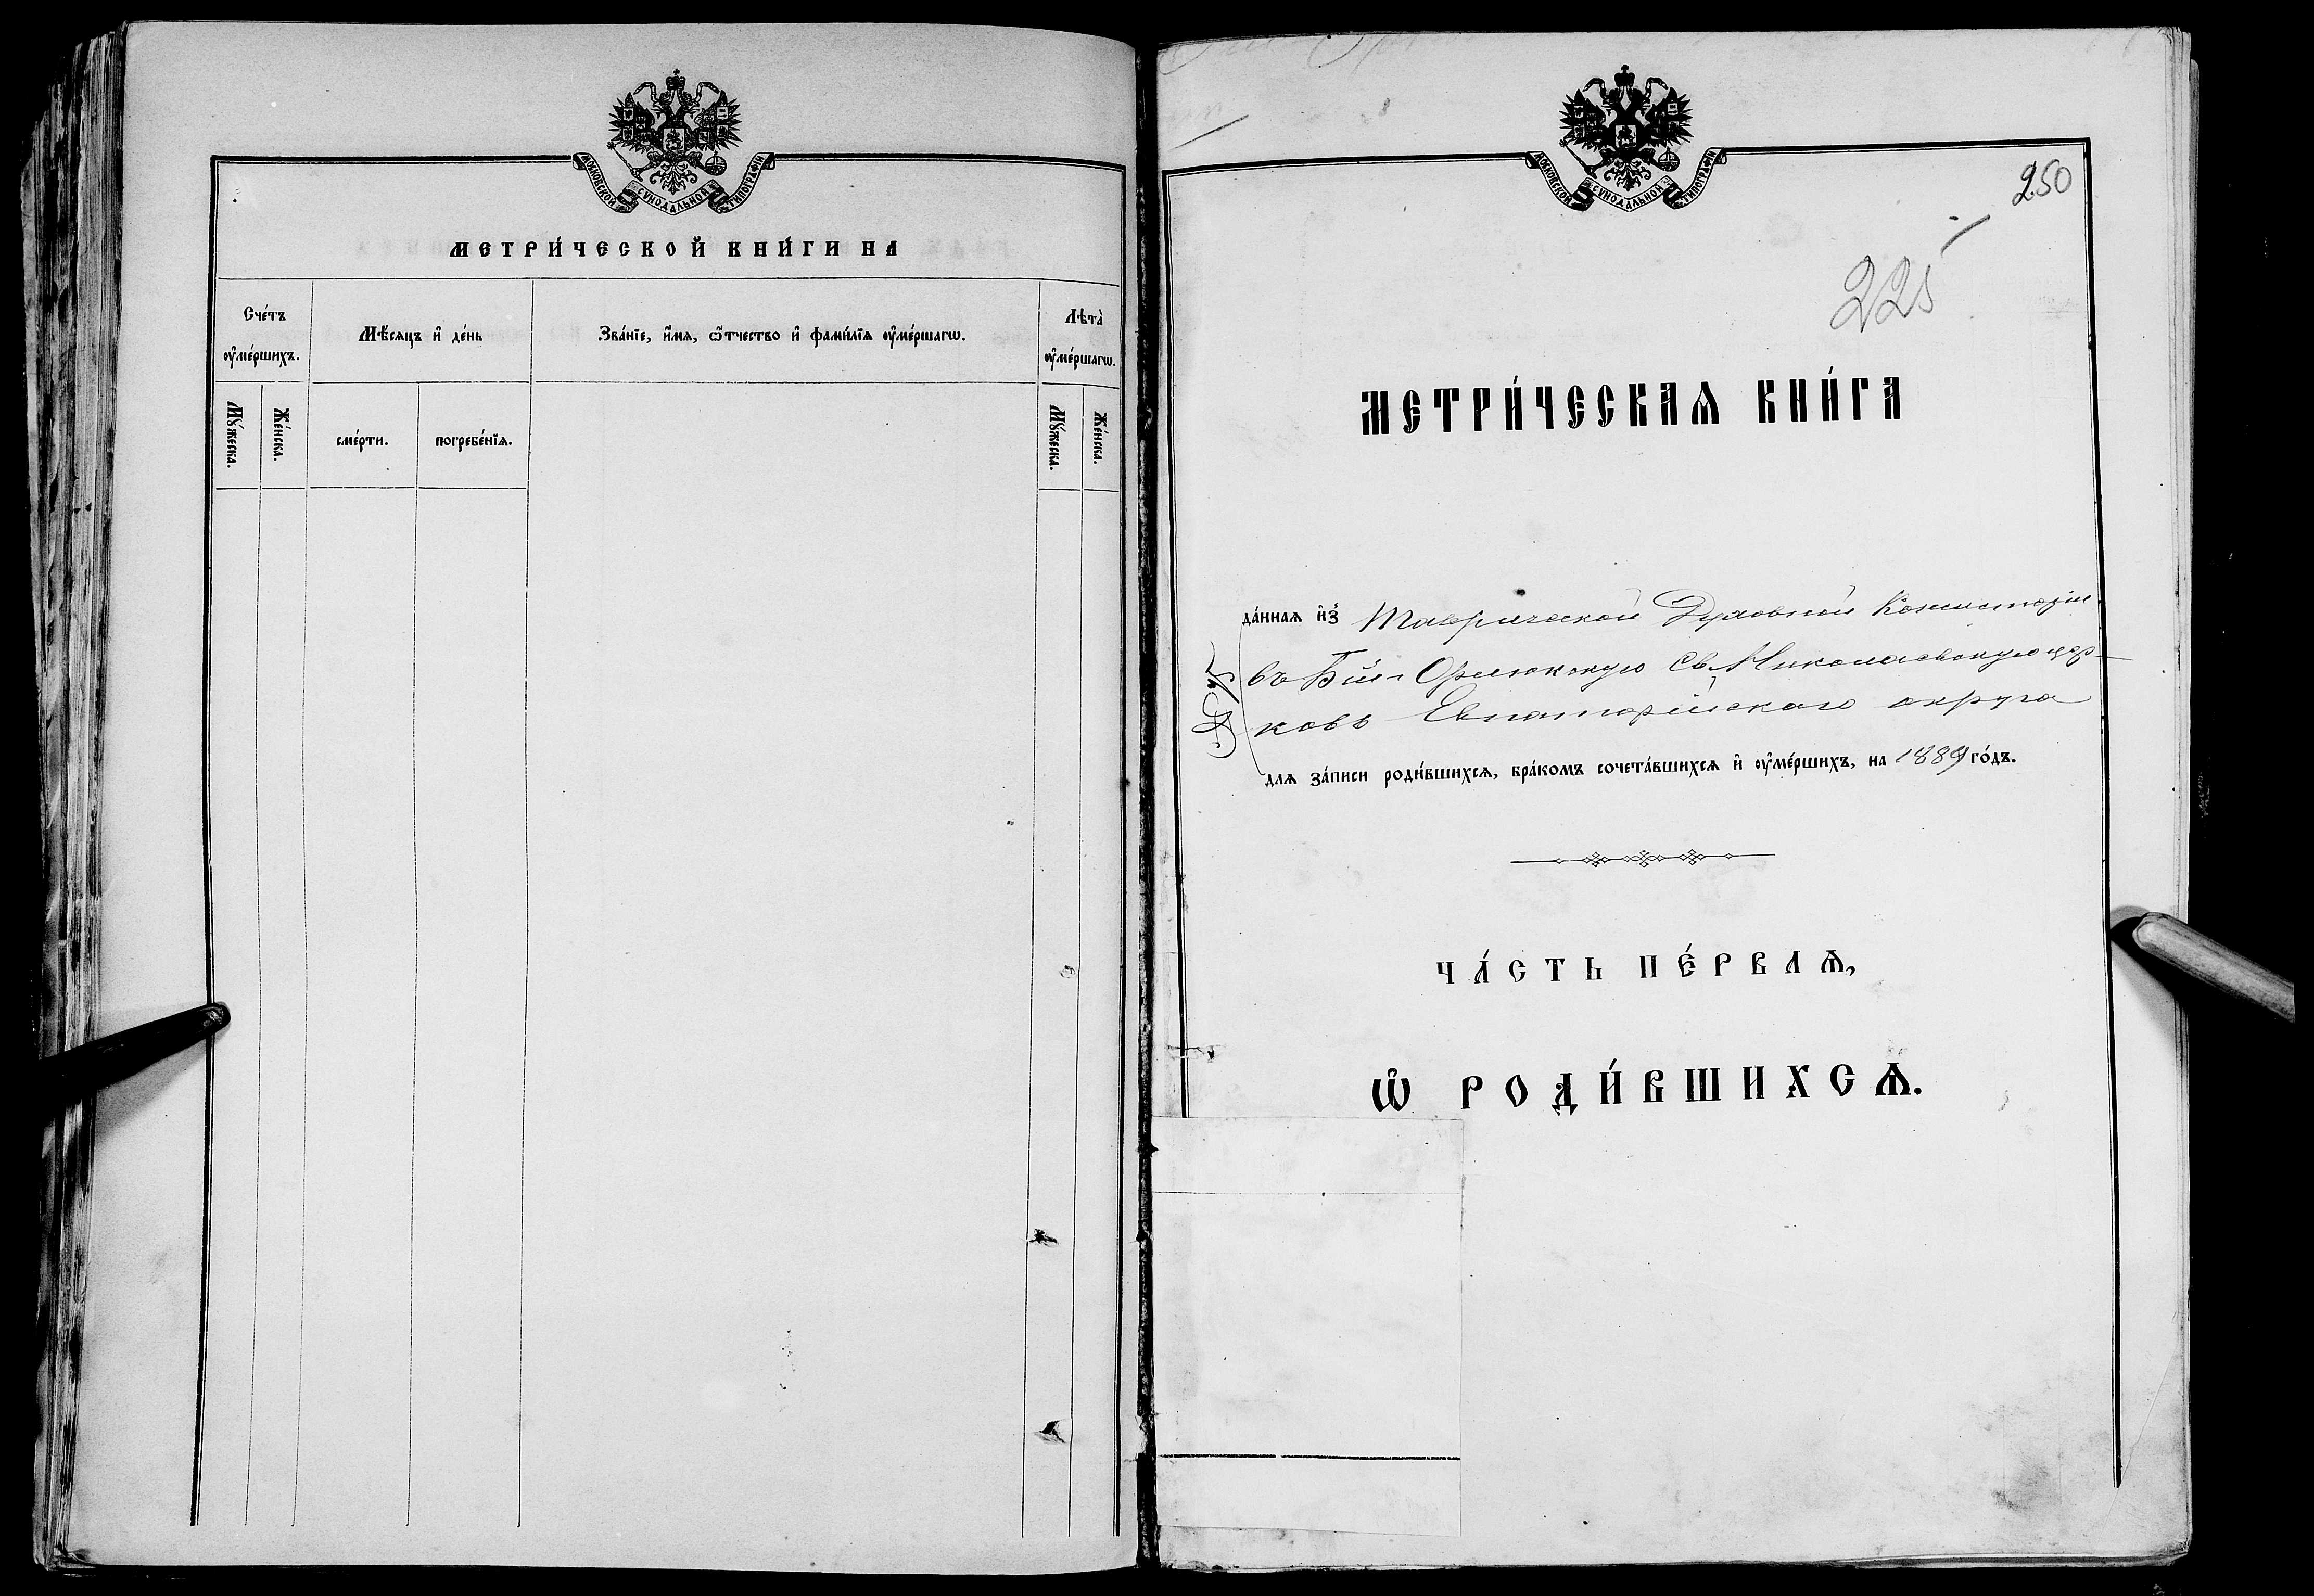 МОСКОВСКОЙ СУНОДАЛЬНОЙ ТИПОГРАФІИ
МЕТРИ́ЧЕСКОЙ КНИ́ГИ НА
Сче́тъ
ᲂу҆ме́ршихъ.
Мѣ́сяцъ и҆ де́нь
Зва́нїе, и҆́мѧ, ѻ҆́тчество и҆ фами́лїѧ ᲂу҆ме́ршагѡ.
Лѣта̀
ᲂу҆ме́ршагѡ.
Мꙋ́жеска.
Же́нска.
сме́рти.
погребе́нїѧ.
Мꙋ́жеска.
Же́нска.
МОСКОВСКОЙ СУНОДАЛЬНОЙ ТИПОГРАФІИ
250
225
МЕТРИ́ЧЕСКАѦ КНИ́ГА
да́ннаѧ и҆з̾ Таврической Духовной Консисторіи
въ Бій-Орлюкскую Св. Николаевскую цер-
ковь Евпаторійскаго округа
длѧ за́писи роди́вшихсѧ, бра́комъ сочета́вшихсѧ и҆ ᲂу҆ме́ршихъ, на 1889 го́дъ.
ЧА́СТЬ ПЕ́РВАѦ,
Ѡ҆ РОДИ́ВШИХСѦ.